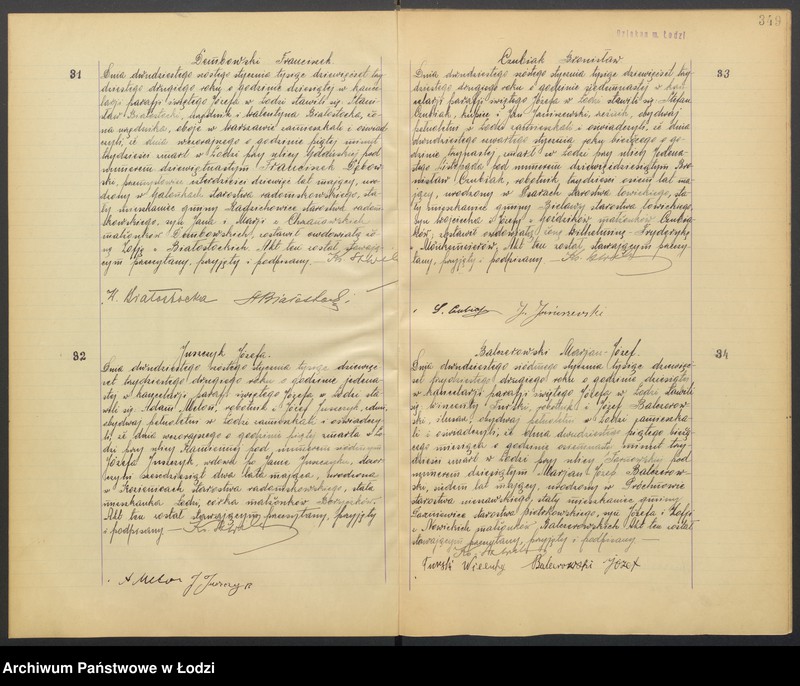 349
Bolabon m. Łodzi
31
Dembowski Franciszek.
Dnia dwudziestego szóstego stycznia tysiąc dziewięćset trzy-
dziestego drugiego roku o godzinie dziesiątej w kance-
larji parafji świętego Józefa w Łodzi stawili się Stani-
sław Białostocki, i Walentyna Białostocka, żo-
na oboje w Warszawie zamieszkali i oświad-
czyli, iż dnia wczorajszego o godzinie piątej minut
trydzieści zmarł w Łodzi przy ulicy Gdańskiej pod
numerem dziewiętnastym Franciszek Dębow-
ski, czterdzieści dziewięć lat mający, uro-
dzony w starostwa radomskowskiego, sta-
ły mieszkaniec gminy Radziechowice starostwa radom-
skowskiego, syn Jana i Marji z Chrzanowskich
małżonków Dembowskich, zostawił owdowiałą żo-
nę Zofję z Białostockich. Akt ten został stawają-
cym przeczytany, przyjęty i podpisany. — Ks. St.
W. Białostocka
32
Juszczyk Józefa.
Dnia dwudziestego szóstego stycznia tysiąc dziewięć-
set trzydziestego drugiego roku o godzinie jedena-
stej w kancelarji parafji świętego Józefa w Łodzi sta-
wili się Adam Meloz, robotnik i Józef Juszczyk,
obydwaj pełnoletni w Łodzi zamieszkali i oświadczy-
li, iż dnia wczorajszego o godzinie piątej zmarła w Ło-
dzi przy ulicy Kamiennej pod numerem siódmym
Józefa Juszczyk, wdowa po Janie Juszczyku,
siedmdziesiąt dwa lata mająca, urodzona
w starostwa radomskowskiego, stała
mieszkanka Łodzi, córka małżonków
Akt ten został stawającym przeczytany, przyjęty
i podpisany — Ks.
A. Meloz J. Juszczyk
33
Czubiak Bronisław
Dnia dwudziestego szóstego stycznia tysiąc dziewięćset trzy-
dziestego drugiego roku o godzinie jedenastej w kan-
celarji parafji świętego Józefa w Łodzi stawili się Stefan
Czubiak, kupiec i Jan Januszewski, obydwaj
pełnoletni w Łodzi zamieszkali i oświadczyli, iż dnia
dwudziestego czwartego roku bieżącego o go-
dzinie trzynastej, zmarł w Łodzi przy ulicy Jedena-
stego Listopada pod numerem dziewięćdziesiątym Bro-
nisław Czubiak, robotnik trzydzieści osiem lat ma-
jący, urodzony w Psarach starostwa łowickiego, sta-
ły mieszkaniec gminy Bielawy starostwa łowickiego,
syn Wojciecha i Józefy z małżonków Czubia-
ków, zostawił owdowiałą żonę Wilhelminę-Fryderykę
z Akt ten został stawającym przeczy-
tany, przyjęty i podpisany — Ks.
S. Czubiak J. Januszewski
34
Balcerowski Marjan-Józef.
Dnia dwudziestego siódmego stycznia tysiąc dziewięć-
set trzydziestego drugiego roku o godzinie dziesiątej
w kancelarji parafji świętego Józefa w Łodzi stawili
się Wincenty Turski, robotnik i Józef Balcerow-
ski, obydwaj pełnoletni w Łodzi zamieszka-
li i oświadczyli, iż dnia dwudziestego piątego bieżą-
cego miesiąca o godzinie osiemnastej minut trzy-
dzieści zmarł w Łodzi przy ulicy pod
numerem dziesiątym Marjan Józef Balcerow-
ski, siedem lat mający, urodzony w
starostwa sieradzkiego, stały mieszkaniec gminy
starostwa piotrkowskiego, syn Józefa i Zofji
z małżonków Balcerowskich. Akt ten został
stawającym przeczytany, przyjęty i podpisany —
Turski Wincenty Balcerowski Józef
Archiwum Państwowe w Łodzi